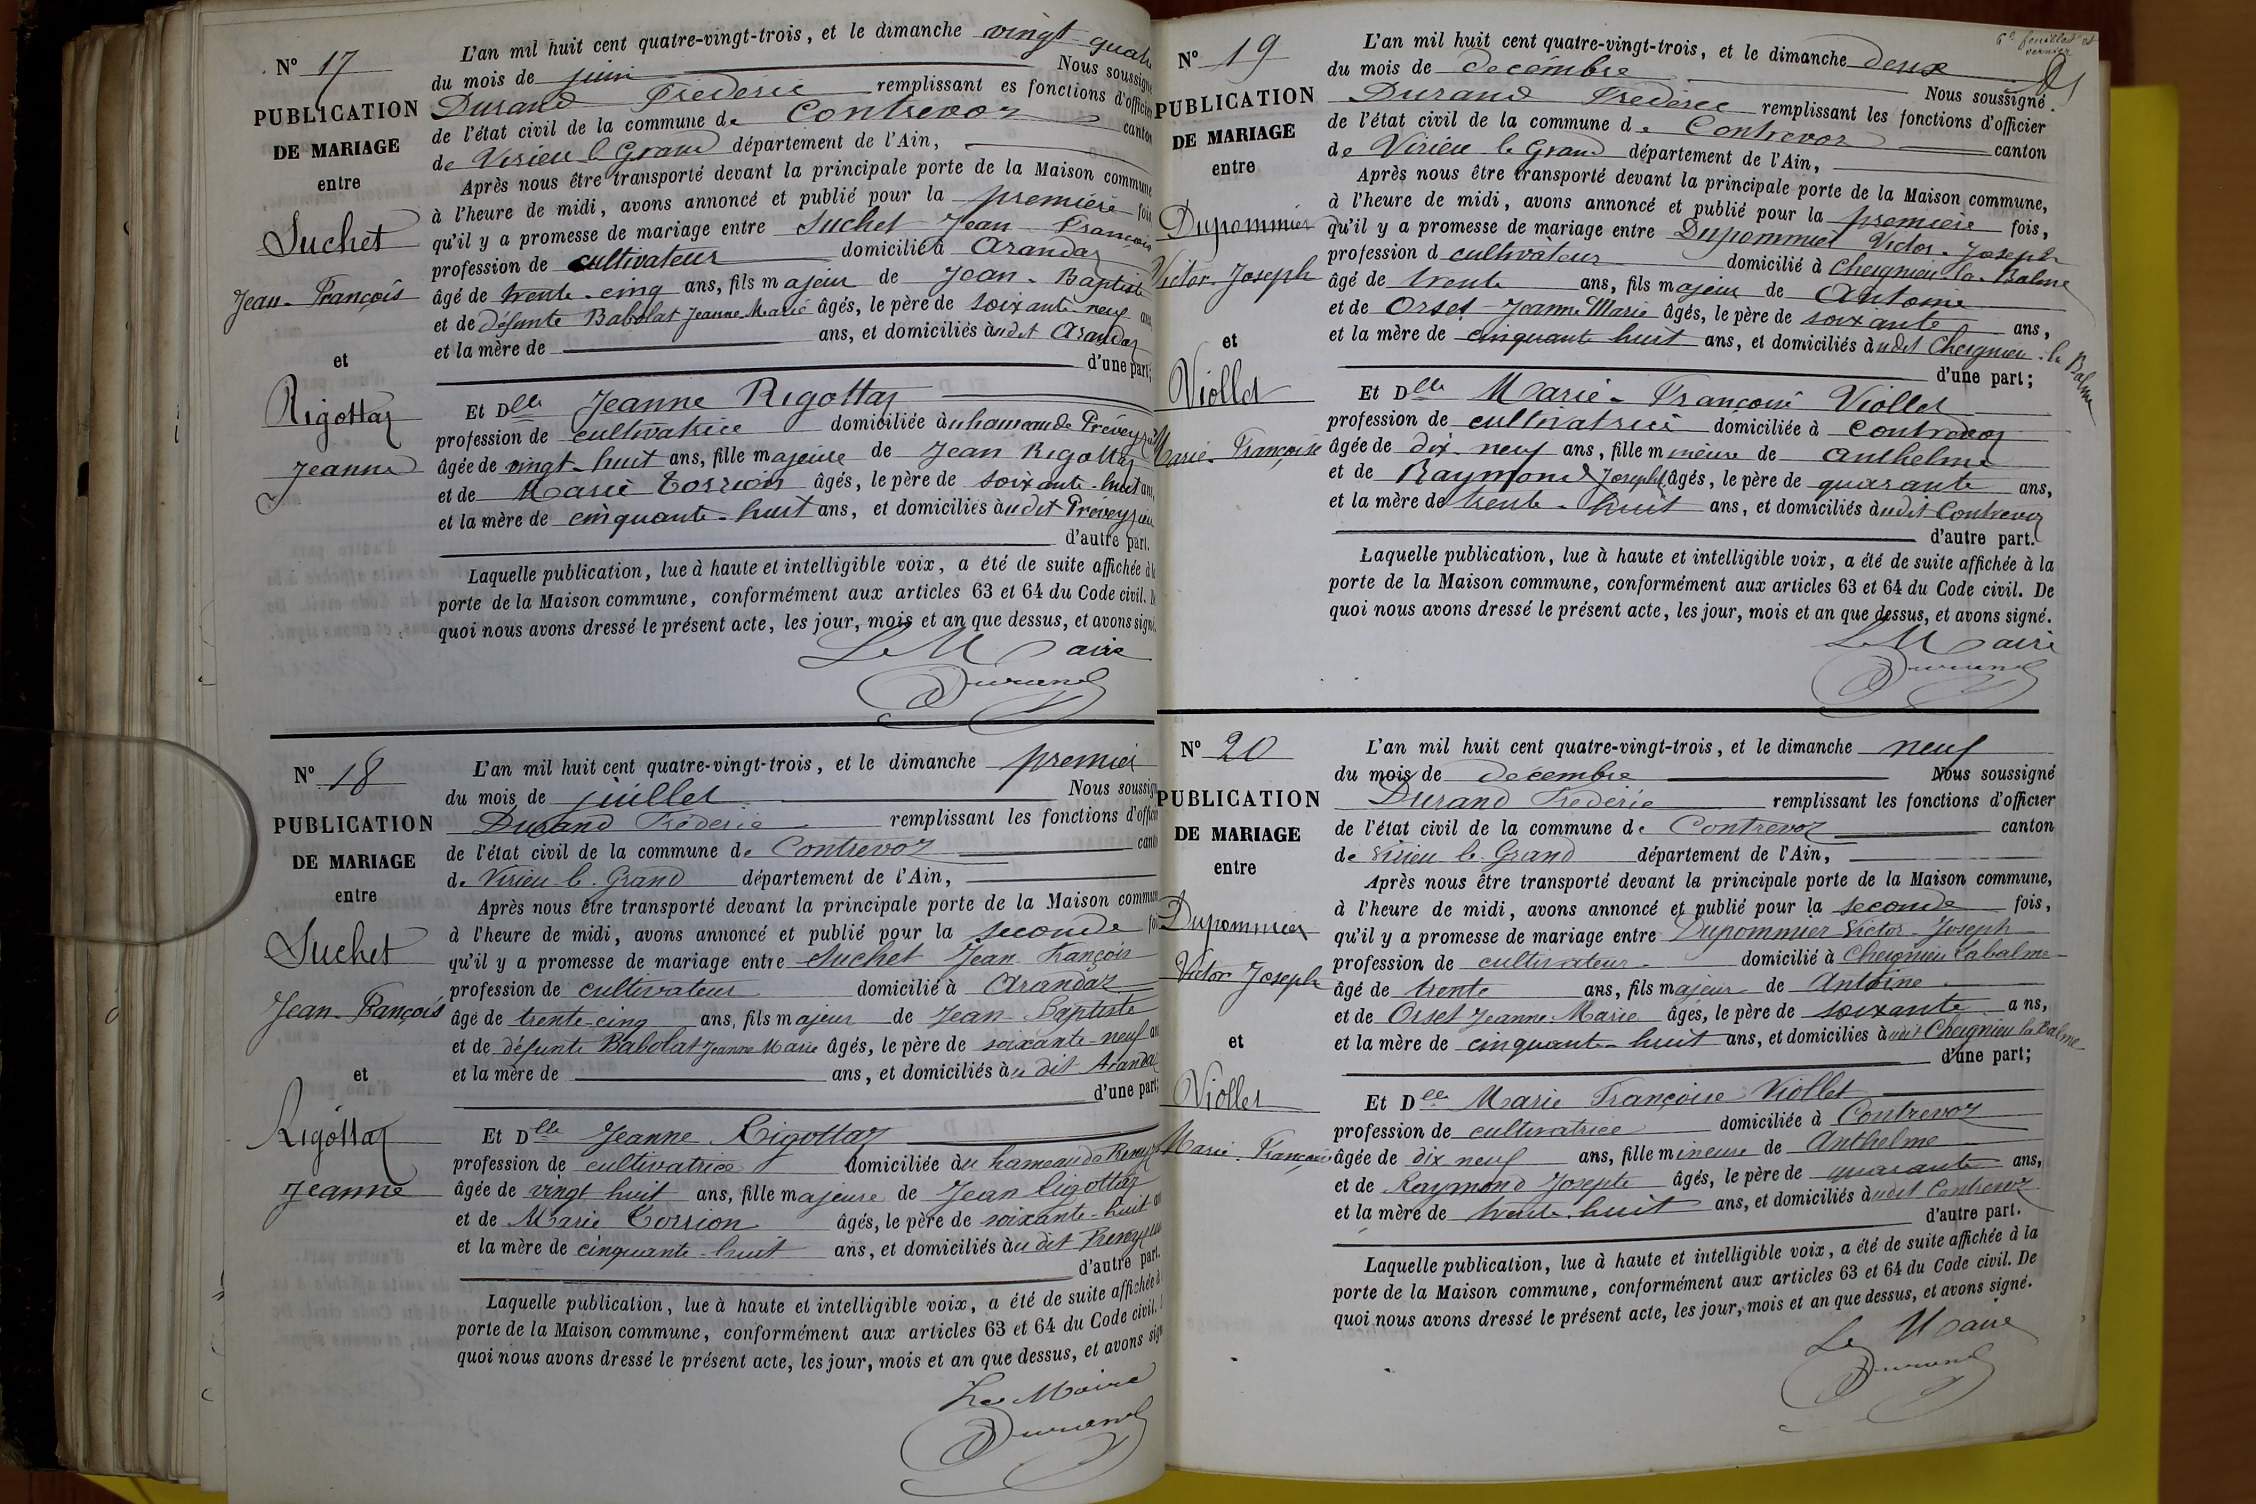 N° 17
PUBLICATION
DE MARIAGE
entre
Suchet
Jean-François
et
Rigottaz
Jeanne
L'an mil huit cent quatre-vingt-trois, et le dimanche vingt quatre
du mois de juin Nous soussigné
Durand Frédéric remplissant es fonctions d'officier
de l'état civil de la commune de Contrevoz canton
de Virieu le Grand département de l'Ain,
Après nous être transporté devant la principale porte de la Maison commune
à l'heure de midi, avons annoncé et publié pour la première fois
qu'il y a promesse de mariage entre Suchet Jean François
profession de cultivateur domicilié à Arandaz
âgé de trente-cinq ans, fils majeur de Jean-Baptiste
et de défunte Babolat Jeanne Marie âgés, le père de soixante-neuf ans,
et la mère de ans, et domiciliés àudit Arandaz
d'une part;
Et Delle Jeanne Rigottaz
profession de cultivatrice domiciliée àu hameau de Préveyzieu
âgée de vingt-huit ans, fille majeure de Jean Rigottaz
et de Marie Torrion âgés, le père de soixante-huit ans,
et la mère de cinquante-huit ans, et domiciliés àudit Préveyzieu
d'autre part.
Laquelle publication, lue à haute et intelligible voix, a été de suite affichée à la
porte de la Maison commune, conformément aux articles 63 et 64 du Code civil. De
quoi nous avons dressé le présent acte, les jour, mois et an que dessus, et avons signé.
Le Maire
Durand
N° 18
PUBLICATION
DE MARIAGE
entre
Suchet
Jean-François
et
Rigottaz
Jeanne
L'an mil huit cent quatre-vingt-trois, et le dimanche premier
du mois de juillet Nous soussigné
Durand Frédéric remplissant les fonctions d'officier
de l'état civil de la commune de Contrevoz canton
de Virieu le Grand département de l'Ain,
Après nous être transporté devant la principale porte de la Maison commune
à l'heure de midi, avons annoncé et publié pour la seconde fois
qu'il y a promesse de mariage entre Suchet Jean François
profession de cultivateur domicilié à Arandaz
âgé de trente-cinq ans, fils majeur de Jean-Baptiste
et de défunte Babolat Jeanne Marie âgés, le père de soixante-neuf ans
et la mère de ans, et domiciliés àu dit Arandaz
d'une part;
Et Delle Jeanne Rigottaz
profession de cultivatrice domiciliée àu hameau de
âgée de vingt huit ans, fille majeure de Jean Rigottaz
et de Marie Torrion âgés, le père de soixante-huit ans
et la mère de cinquante-huit ans, et domiciliés àu dit
d'autre part.
Laquelle publication, lue à haute et intelligible voix, a été de suite affichée à
porte de la Maison commune, conformément aux articles 63 et 64 du Code civil.
quoi nous avons dressé le présent acte, les jour, mois et an que dessus, et avons signé
Le Maire
Durand
6e feuillet et
dernier
N° 19
PUBLICATION
DE MARIAGE
entre
Dupommier
Victor-Joseph
et
Viollet
Marie-Françoise
L'an mil huit cent quatre-vingt-trois, et le dimanche deux
du mois de decembre Nous soussigné
Durand Frédéric remplissant les fonctions d'officier
de l'état civil de la commune de Contrevoz canton
de Virieu le Grand département de l'Ain,
Après nous être transporté devant la principale porte de la Maison commune,
à l'heure de midi, avons annoncé et publié pour la première fois,
qu'il y a promesse de mariage entre Dupommier Victor-Joseph
profession d cultivateur domicilié à Cheignieu-la-Balme
âgé de trente ans, fils majeur de Antoine
et de Orset Jeanne Marie âgés, le père de soixante ans,
et la mère de cinquante huit ans, et domiciliés àudit Cheignieu-la Balme
d'une part;
Et Delle Marie-Françoise Viollet
profession de cultivatrice domiciliée à Contrevoz
âgée de dix-neuf ans, fille mineure de Anthelme
et de Raymond Josephte âgés, le père de quarante ans,
et la mère de trente-huit ans, et domiciliés àudit Contrevoz
d'autre part.
Laquelle publication, lue à haute et intelligible voix, a été de suite affichée à la
porte de la Maison commune, conformément aux articles 63 et 64 du Code civil. De
quoi nous avons dressé le présent acte, les jour, mois et an que dessus, et avons signé.
Le Maire
Durand
N° 20
PUBLICATION
DE MARIAGE
entre
Dupommier
Victor Joseph
et
Viollet
Marie-Françoise
L'an mil huit cent quatre-vingt-trois, et le dimanche neuf
du mois de décembre Nous soussigné
Durand Frédéric remplissant les fonctions d'officier
de l'état civil de la commune de Contrevoz canton
de Virieu le Grand département de l'Ain,
Après nous être transporté devant la principale porte de la Maison commune,
à l'heure de midi, avons annoncé et publié pour la seconde fois,
qu'il y a promesse de mariage entre Dupommier Victor-Joseph
profession de cultivateur domicilié à Cheignieu Labalme
âgé de trente ans, fils majeur de Antoine
et de Orset Jeanne-Marie âgés, le père de soixante ans,
et la mère de cinquante-huit ans, et domiciliés àudit Cheignieu la Balme
d'une part;
Et Delle Marie Françoise Viollet
profession de cultivatrice domiciliée à Contrevoz
âgée de dix neuf ans, fille mineure de Anthelme
et de Raymond Josephte âgés, le père de quarante ans,
et la mère de trente-huit ans, et domiciliés àudit Contrevoz
d'autre part.
Laquelle publication, lue à haute et intelligible voix, a été de suite affichée à la
porte de la Maison commune, conformément aux articles 63 et 64 du Code civil. De
quoi nous avons dressé le présent acte, les jour, mois et an que dessus, et avons signé.
Le Maire
Durand